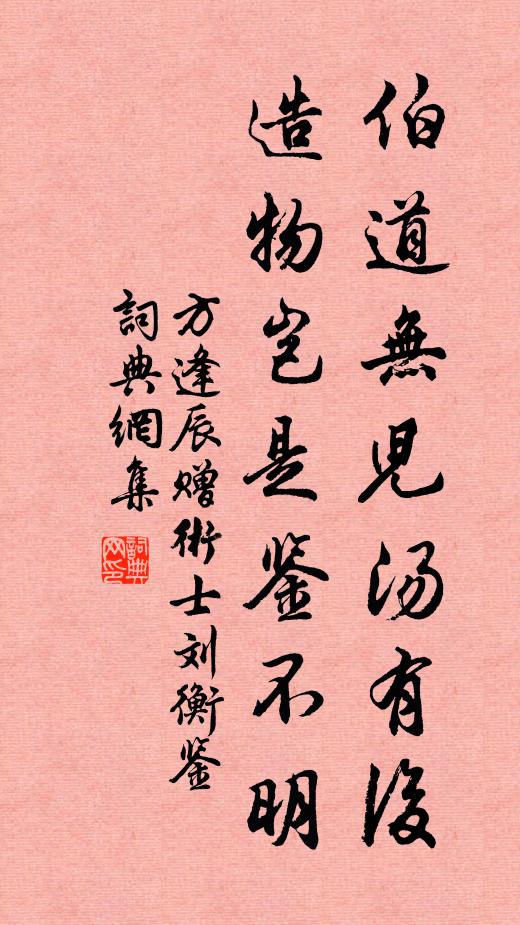 伯道無児汤有後
造物岂是鉴不明
方逢辰赠術士刘衡鉴
詞典網集
詞典
网印